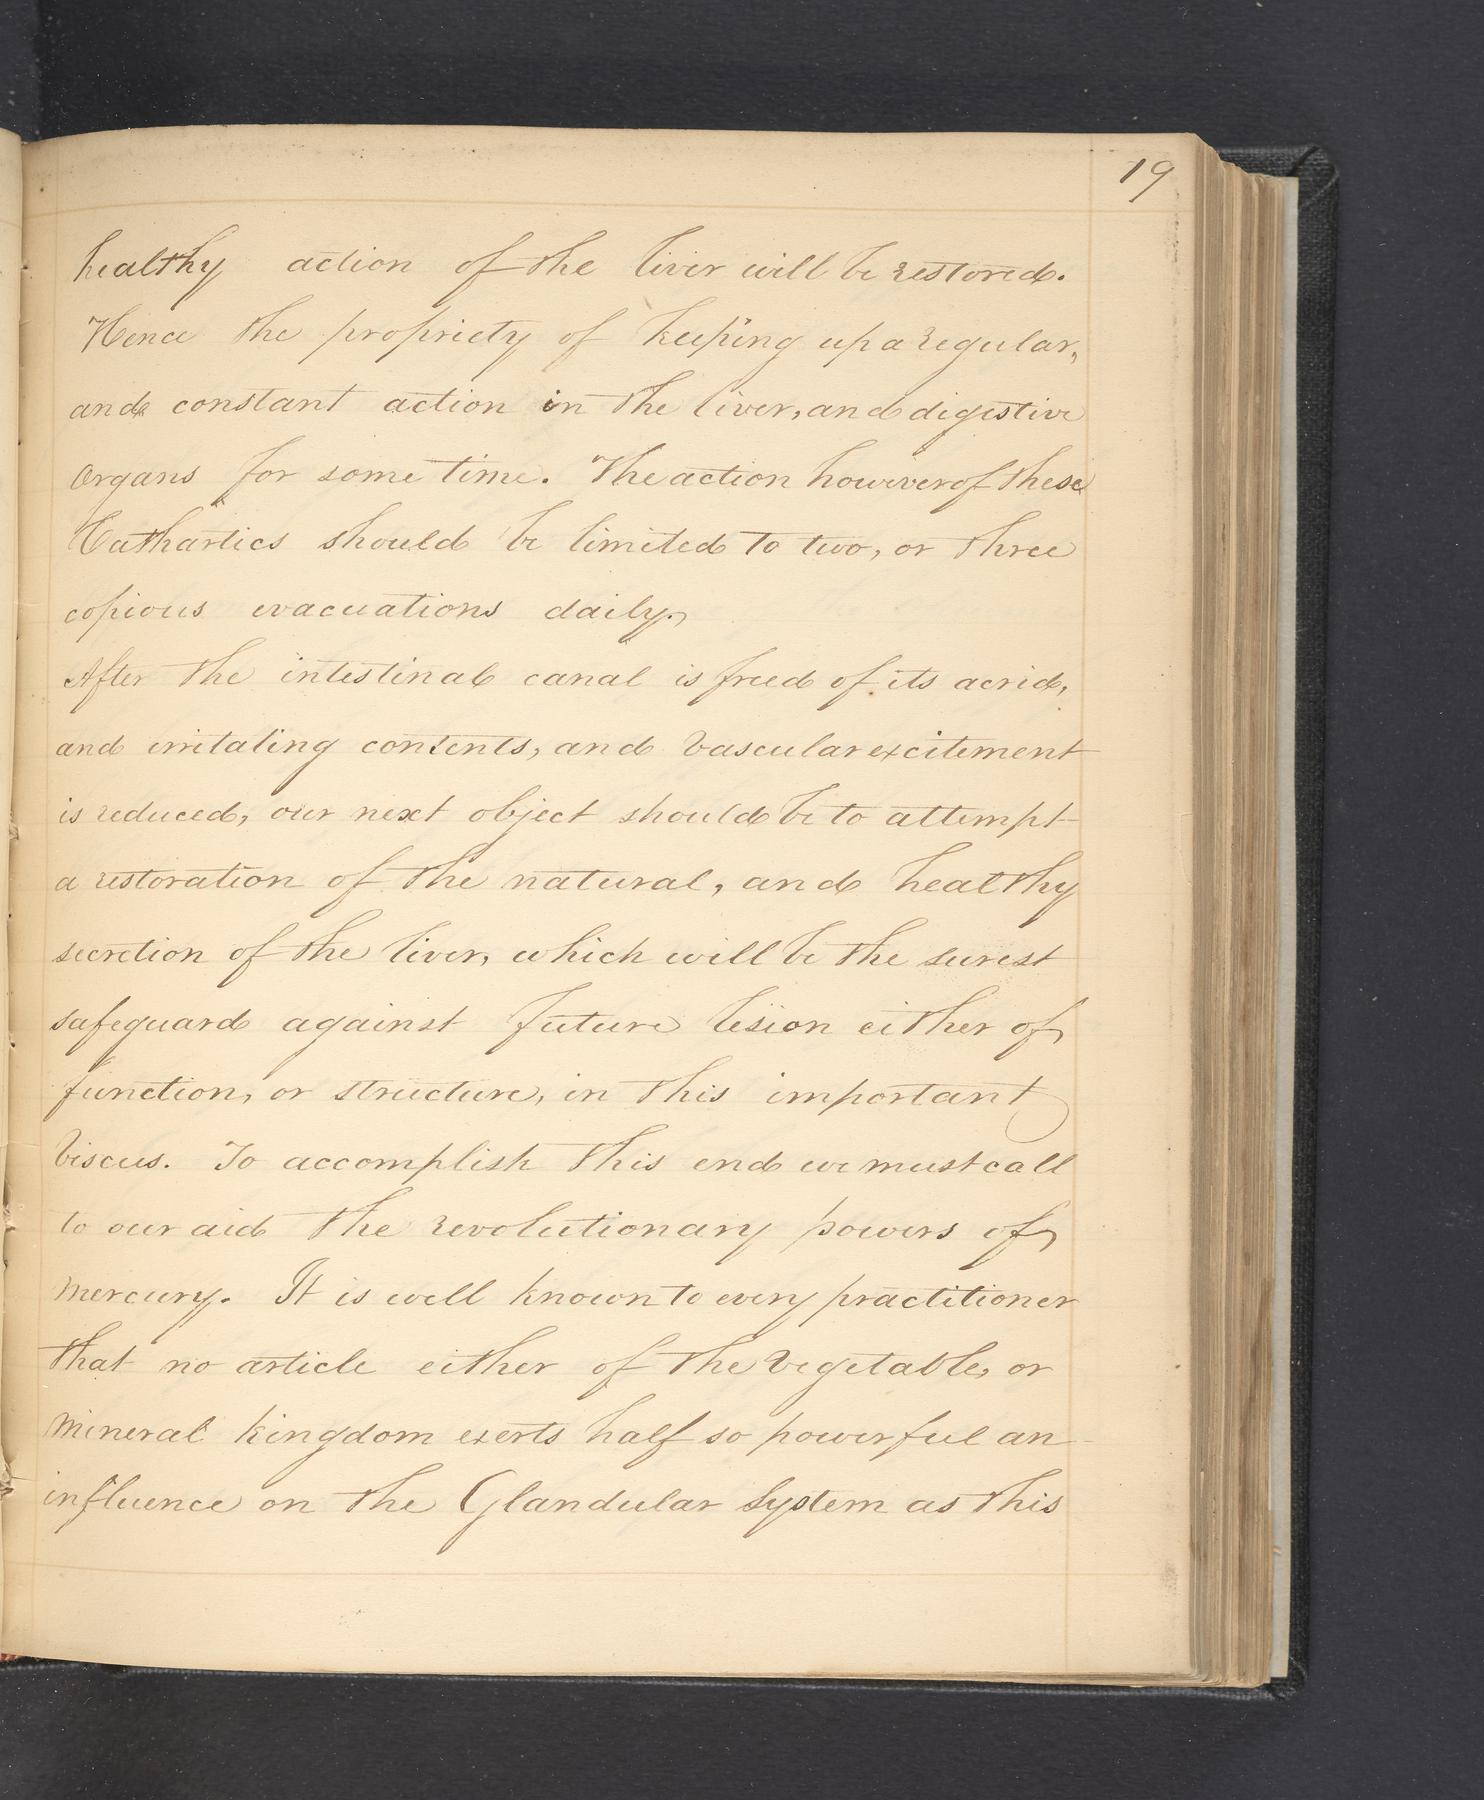 19
healthy action of the liver will be restored.
Hence the propriety of keeping up a regular,
and constant action in the liver, and digestive
organs for some time. The action however of these
Cathartics should be limited to two, or three
copious evacuations daily.
After the intestinal canal is freed of its acrid,
and irritating contents, and vascular excitement
is reduced, our next object should be to attempt
a restoration of the natural, and healthy
secretion of the liver, which will be the surest
safeguard against future lesion either of
function, or structure, in this important
viscus. To accomplish this end we must call
to our aid the revolutionary powers of
mercury. It is well known to every practitioner
that no article either of the vegetable, or
mineral kingdom exerts half so powerful an
influence on the Glandular System as this